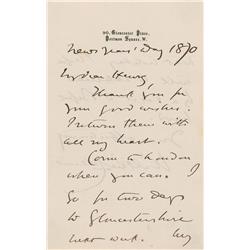 90, Gloucester Place,
Portman Square, W.
New Years' Day 1870
My dear Henry
Thank you for
your good wishes.
I return them with
all my heart.
Come to London
when you can. I
go for two days
to Gloucestershire
next week. My